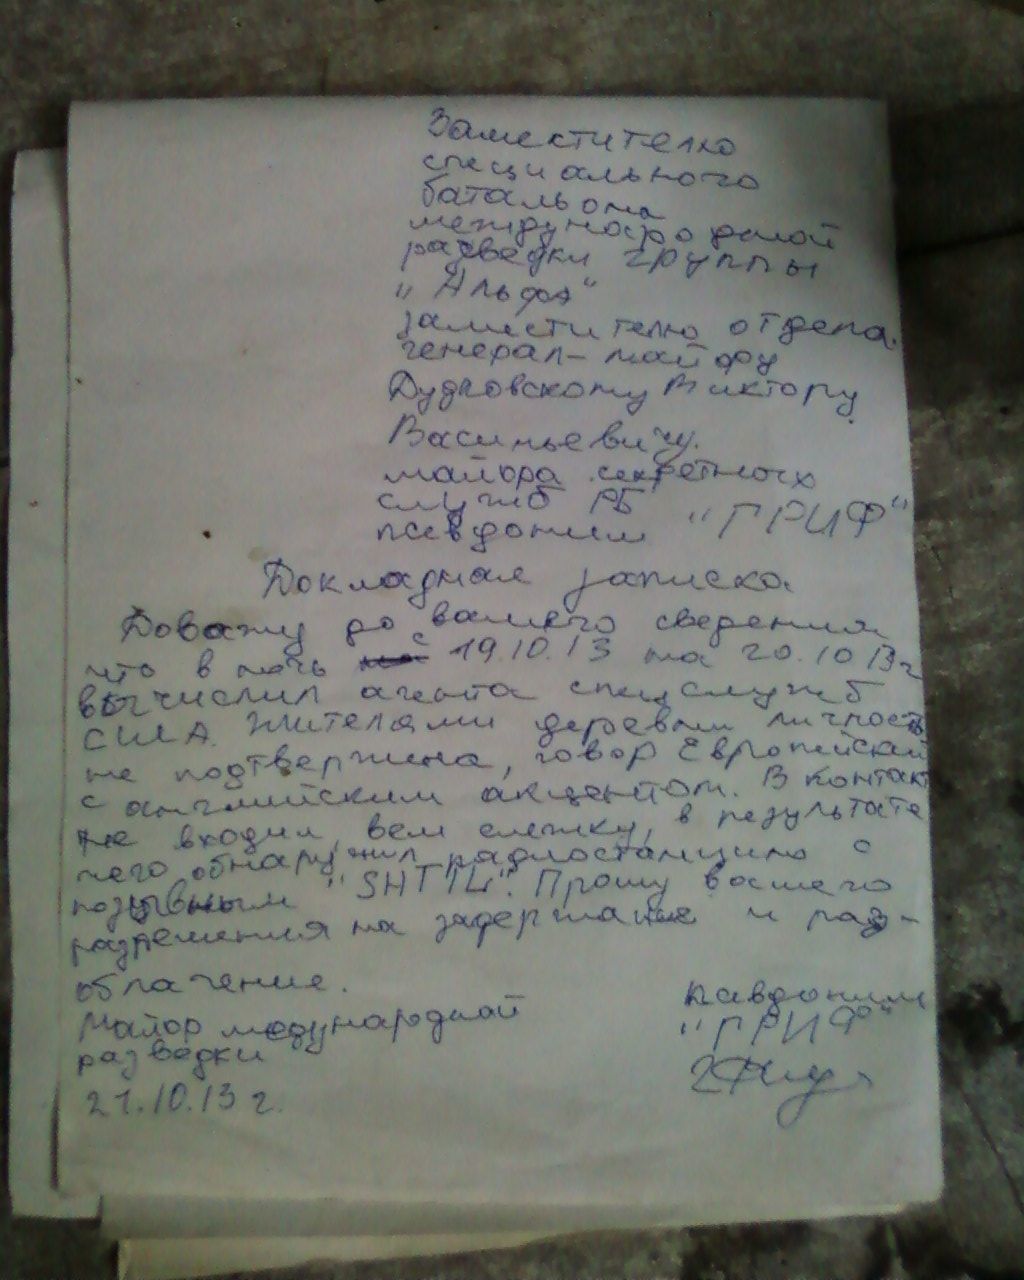 Заместителю
специального
батальона
международной
разведки группы
"Альфа"
заместителю отдела.
генерал-майору
Дудковскому Виктору
Васильевичу.
майора секретных
служб РБ
псевдоним "ГРИФ"
Докладная записка
Доважу до вашего сведения
что в ночь с 19.10.13 на 20.10 13г
вычислил агента спецслужб
США. Жителями деревни личность
не подтвержина, говор Европейский
с английским акцентом. В контакт
не входил, вем слежку, в результате
чего обнаружил радиостанцию с
позывным "SHTIL". Прошу вашего
разрешения на задержание и раз-
облачение.
Майор международной
разведки
21.10.13 г.
псевдоним
"ГРИФ"